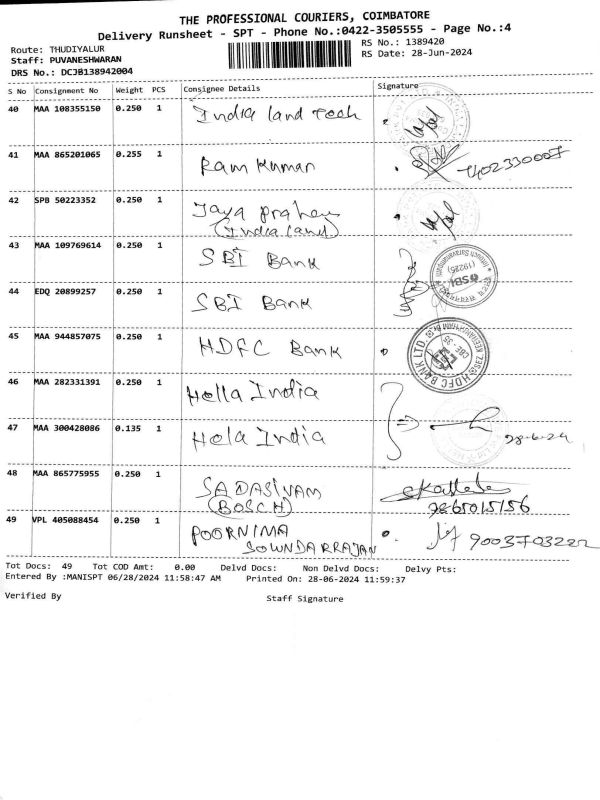 THE PROFESSIONAL COURIERS, COIMBATORE
Delivery Runsheet - SPT - Phone No.:0422-3505555 - Page No.:4
Route: THUDIYALUR
RS No.: 1389420
Staff: PUVANESHWARAN
RS Date: 28-Jun-2024
DRS No.: DCJB138942004
S No Consignment No Weight PCS Consignee Details Signature
40 MAA 108355150 0.250 1 India land Tech
41 MAA 865201065 0.255 1 Ram Kumar
42 SPB 50223352 0.250 1 Jaya
(India land)
43 MAA 109769614 0.250 1 SBI Bank
44 EDQ 20899257 0.250 1 SBI Bank
45 MAA 944857075 0.250 1 HDFC Bank
HDFC BANK LTD.
46 MAA 282331391 0.250 1 Hella India
47 MAA 300428086 0.135 1 Hela India 28-6-24
48 MAA 865775955 0.250 1 SADASIVAM
(BOSCH)
49 VPL 405088454 0.250 1 POORNIMA
SOWNDARRAJAN 9003703222
Tot Docs: 49 Tot COD Amt: 0.00 Delvd Docs: Non Delvd Docs: Delvy Pts:
Entered By :MANISPT 06/28/2024 11:58:47 AM Printed On: 28-06-2024 11:59:37
Verified By Staff Signature